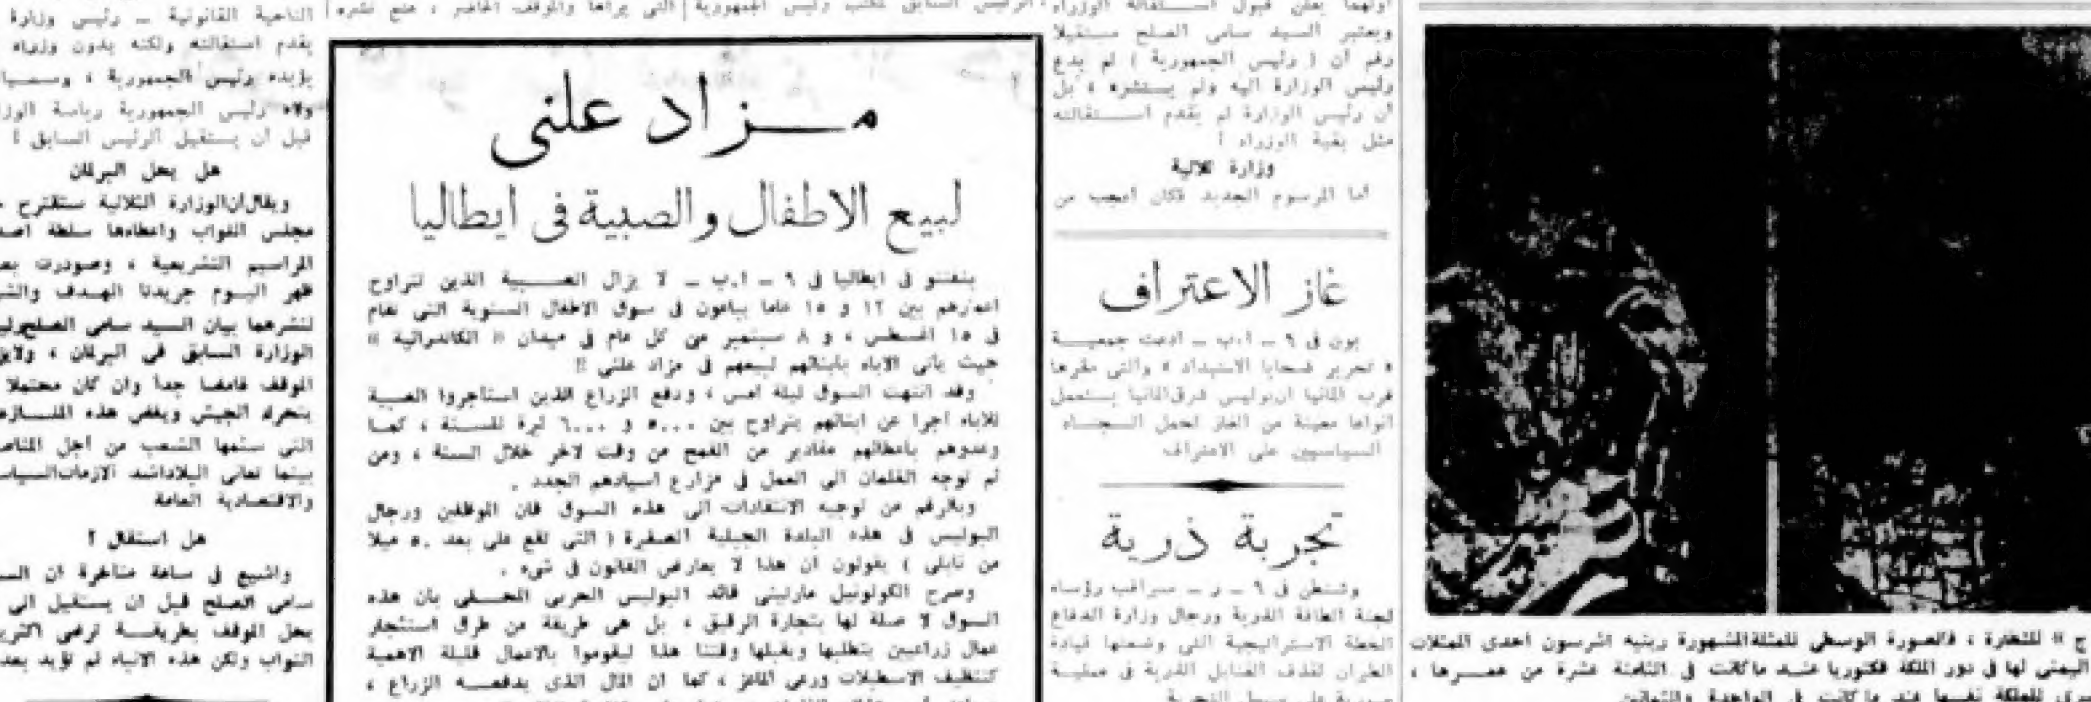 أولهما يعلن قبول اســتقالة الوزراء
ويعتبر السيد سامى الصلح مستقيلا
رغم أن ( رئيس الجمهورية ) لم يدع
رئيس الوزارة اليه ولم يستشره ، بل
ان رئيس الوزارة لم يقدم اســتقالته
مثل بقية الوزراء !
وزارة ثلاثية
أما المرسوم الجديد فكان أعجب من
غاز الاعتراف
بون فى ٩ ـ ا.ب ـ ادعت جمعيــة
« تحرير ضحايا الاستبداد » والتى مقرها
غرب المانيا ان بوليس شرق المانيا يستعمل
انواعا معينة من الغاز لحمل الســجناء
السياسيين على الاعتراف
تجربة ذرية
وشنطن فى ٩ ـ ر ـ سيراقب رؤساء
لجنة الطاقة الذرية ورجال وزارة الدفاع
الخطة الاستراتيجية التى وضعتها قيادة
الطيران لقذف القنابل الذرية فى عمليــة
صورية على سبيل التجربة
مــزاد علنى
لبيع الاطفال والصبية فى ايطاليا
بنفنتو فى ايطاليا فى ٩ ـ ا.ب ـ لا يزال الصــبية الذين تتراوح
اعمارهم بين ١٢ و ١٥ عاما يباعون فى سوق الاطفال السنوية التى تقام
فى ١٥ اغسطس ، و ٨ سبتمبر من كل عام فى ميدان « الكاتدرائية »
حيث يأتى الاباء بأبنائهم لبيعهم فى مزاد علنى !!
وقد انتهت السوق ليلة امس ، ودفع الزراع الذين استأجروا الصبية
للاباء اجرا عن ابنائهم يتراوح بين ٥٠٠٠ و ٦٠٠٠ ليرة للسنة ، كمــا
وعدوهم باعطائهم مقادير من القمح من وقت لاخر خلال السنة ، ومن
ثم توجه الغلمان الى العمل فى مزارع اسيادهم الجدد .
وبالرغم من توجيه الانتقادات الى هذه السوق فان الموظفين ورجال
البوليس فى هذه البلدة الجبلية الصغيرة ( التى تقع على بعد ٥٠ ميلا
من نابلى ) يقولون ان هذا لا يعارض القانون فى شىء .
وصرح الكولونيل مارتينى قائد البوليس الحربى المحــلى بان هذه
السوق لا صلة لها بتجارة الرقيق ، بل هى طريقة من طرق استئجار
عمال زراعيين يتطلبها ويقبلها وقتنا هذا ليقوموا بالاعمال قليلة الاهمية
كتنظيف الاسطبلات ورعى الماعز ، كما ان المال الذى يدفعــه الزراع ،
الناحية القانونية ـ رئيس وزارة
يقدم استقالته ولكنه بدون وزراء
يؤيده رئيس الجمهورية ، وســـيا
ولاه رئيس الجمهورية رياسة الوز
قبل ان يستقيل الرئيس السابق !
هل يحل البرلمان
ويقال ان الوزارة الثلاثية ستقترح
مجلس النواب واعطاءها سلطة اصد
المراسيم التشريعية ، وصودرت بع
ظهر اليــوم جريدتا الهــدف والش
لنشرهما بيان السيد سامى الصلح رئي
الوزارة السابق فى البرلمان ، ولايز
الموقف غامضا جدا وان كان محتملا
يتحرك الجيش ويفض هذه المنــازع
التى سئمها الشعب من أجل المناص
بينما تعانى البلاد اشد الازمات السياس
والاقتصادية العامة
هل استقال ؟
واشيع فى ساعة متأخرة ان الس
سامى الصلح قبل ان يستقيل الى
بحل الموقف بطريقــة ترضى اكثري
النواب ولكن هذه الانباء لم تؤيد بعد
ج » للنظارة ، فالصورة الوسطى للممثلة المشهورة رينيه اشرسون احدى الممثلات
اليمنى لها فى دور الملكة فكتوريا عنــد ما كانت فى الثامنة عشرة من عمــرها ،
سرى للملكة نفسها عند ما كانت فى الواحدة والثمانين